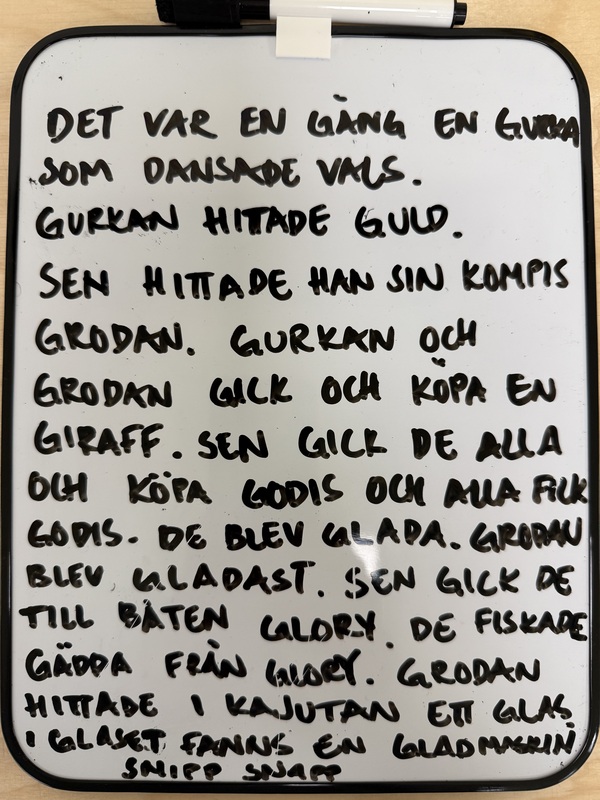 DET VAR EN GÅNG EN GURKA
SOM DANSADE VALS.
GURKAN HITTADE GULD.
SEN HITTADE HAN SIN KOMPIS
GRODAN. GURKAN OCH
GRODAN GICK OCH KÖPA EN
GIRAFF. SEN GICK DE ALLA
OCH KÖPA GODIS OCH ALLA FICK
GODIS. DE BLEV GLADA. GRODAN
BLEV GLADAST. SEN GICK DE
TILL BÅTEN GLORY. DE FISKADE
GÄDDA FRÅN GLORY. GRODAN
HITTADE I KAJUTAN ETT GLAS.
I GLASET FANNS EN GLADMASKIN
SNIPP SNAPP